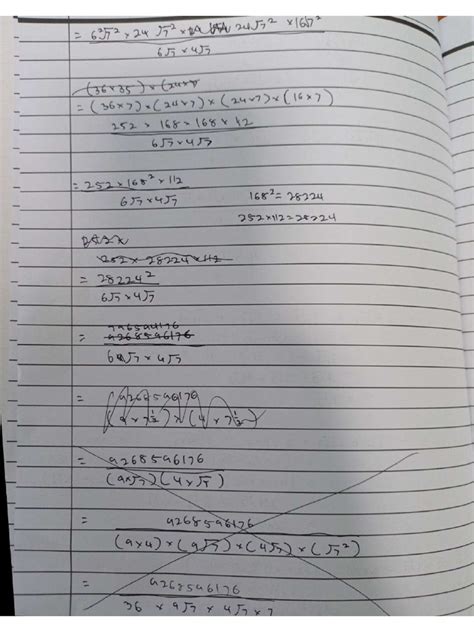 = 6²√7² × 24 √7² × 24√7² × 16√7²
6√7 × 4√7
(36×35) × (24×7
= (36×7) × (24×7) × (24×7) × (16×7)
252 × 168 × 168 × 112
6√7 × 4√7
= 252 × 168² × 112
6√7 × 4√7
168² = 28224
252×112 = 28224
252 × 28224 × 112
= 28224²
6√7 × 4√7
= 796594176
9268596176
6√7 × 4√7
= 9268596176
(9 × 7½) × (4 × 7½)
= 9268596176
(9×√7)(4×√7)
= 9268596176
(9×4) × (9√7) × (4√7) × (√7²)
= 9268596176
36 × 9√7 × 4√7 × 7